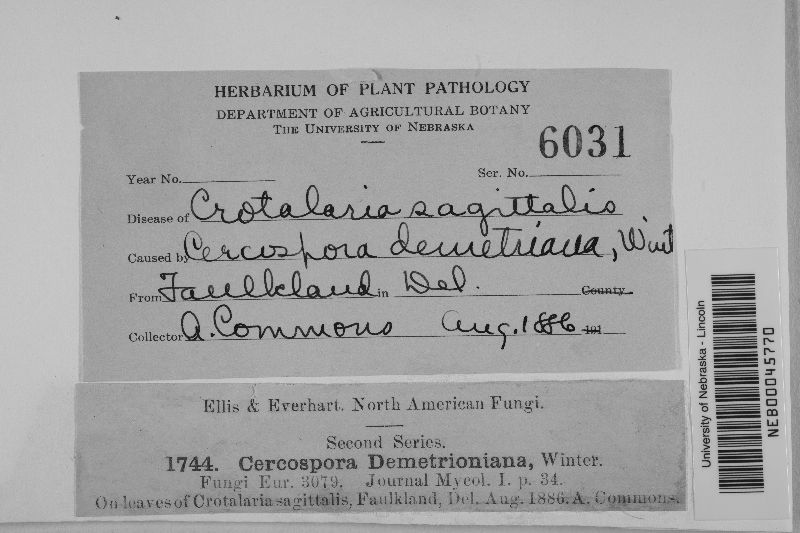 HERBARIUM OF PLANT PATHOLOGY
DEPARTMENT OF AGRICULTURAL BOTANY
THE UNIVERSITY OF NEBRASKA
6031
Year No. Ser. No.
Disease of Crotalaria sagittalis
Caused by Cercospora demetriana, Wint
From Faulkland in Del. County
Collector A. Commons Aug. 1886 191
Ellis & Everhart. North American Fungi.
Second Series.
1744. Cercospora Demetrioniana, Winter.
Fungi Eur. 3079. Journal Mycol. I. p. 34.
On leaves of Crotalaria sagittalis, Faulkland, Del. Aug. 1886. A. Commons.
University of Nebraska - Lincoln
NEB00045770